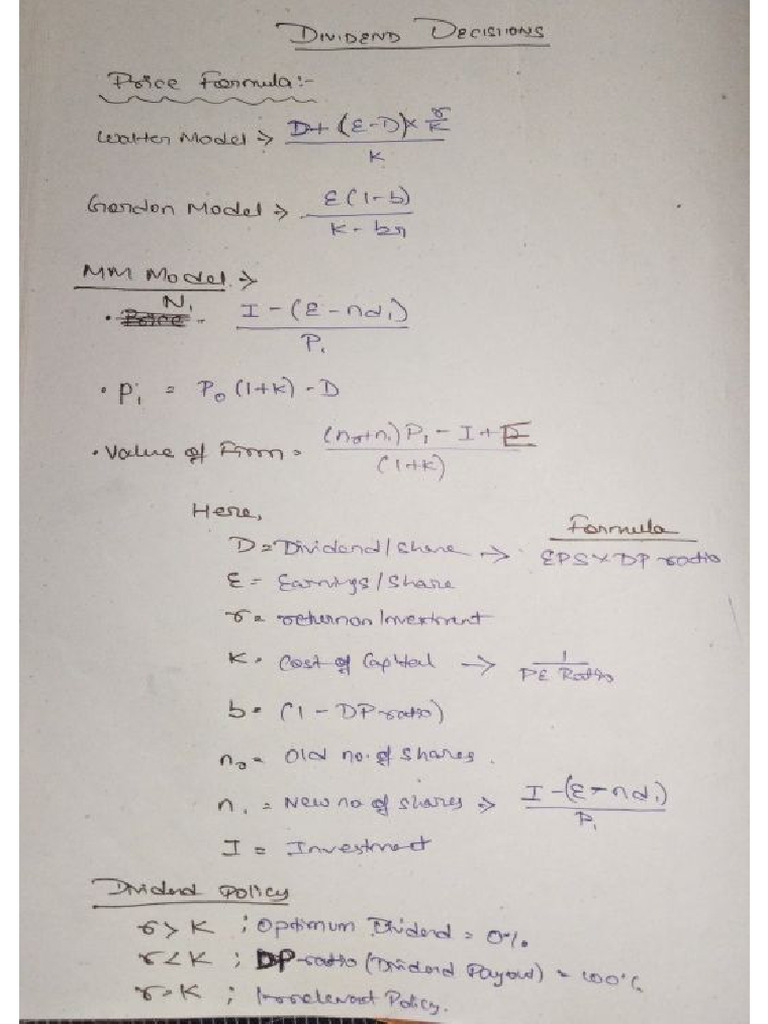 DIVIDEND DECISIONS
Price Formula:-
Walter Model → D+(E-D)× r/K / K
Gordon Model → E(1-b) / K-br
MM Model →
• N₁ - I-(E-nd₁) / P₁
• P₁ = P₀(1+K)-D
• Value of Firm = (n₀+n₁)P₁-I+E / (1+K)
Here,
Formula
D = Dividend/Share → EPS×DP ratio
E = Earnings/Share
r = return on Investment
K = Cost of Capital → 1 / PE Ratio
b = (1-DP ratio)
n₀ = Old no. of Shares.
n₁ = New no of Shares → I-(E-nd₁) / P₁
I = Investment
Dividend Policy
r>K ; Optimum Dividend = 0%.
r<K ; DP-ratio (Dividend Payout) = 100%
r=K ; Irrelevant Policy.